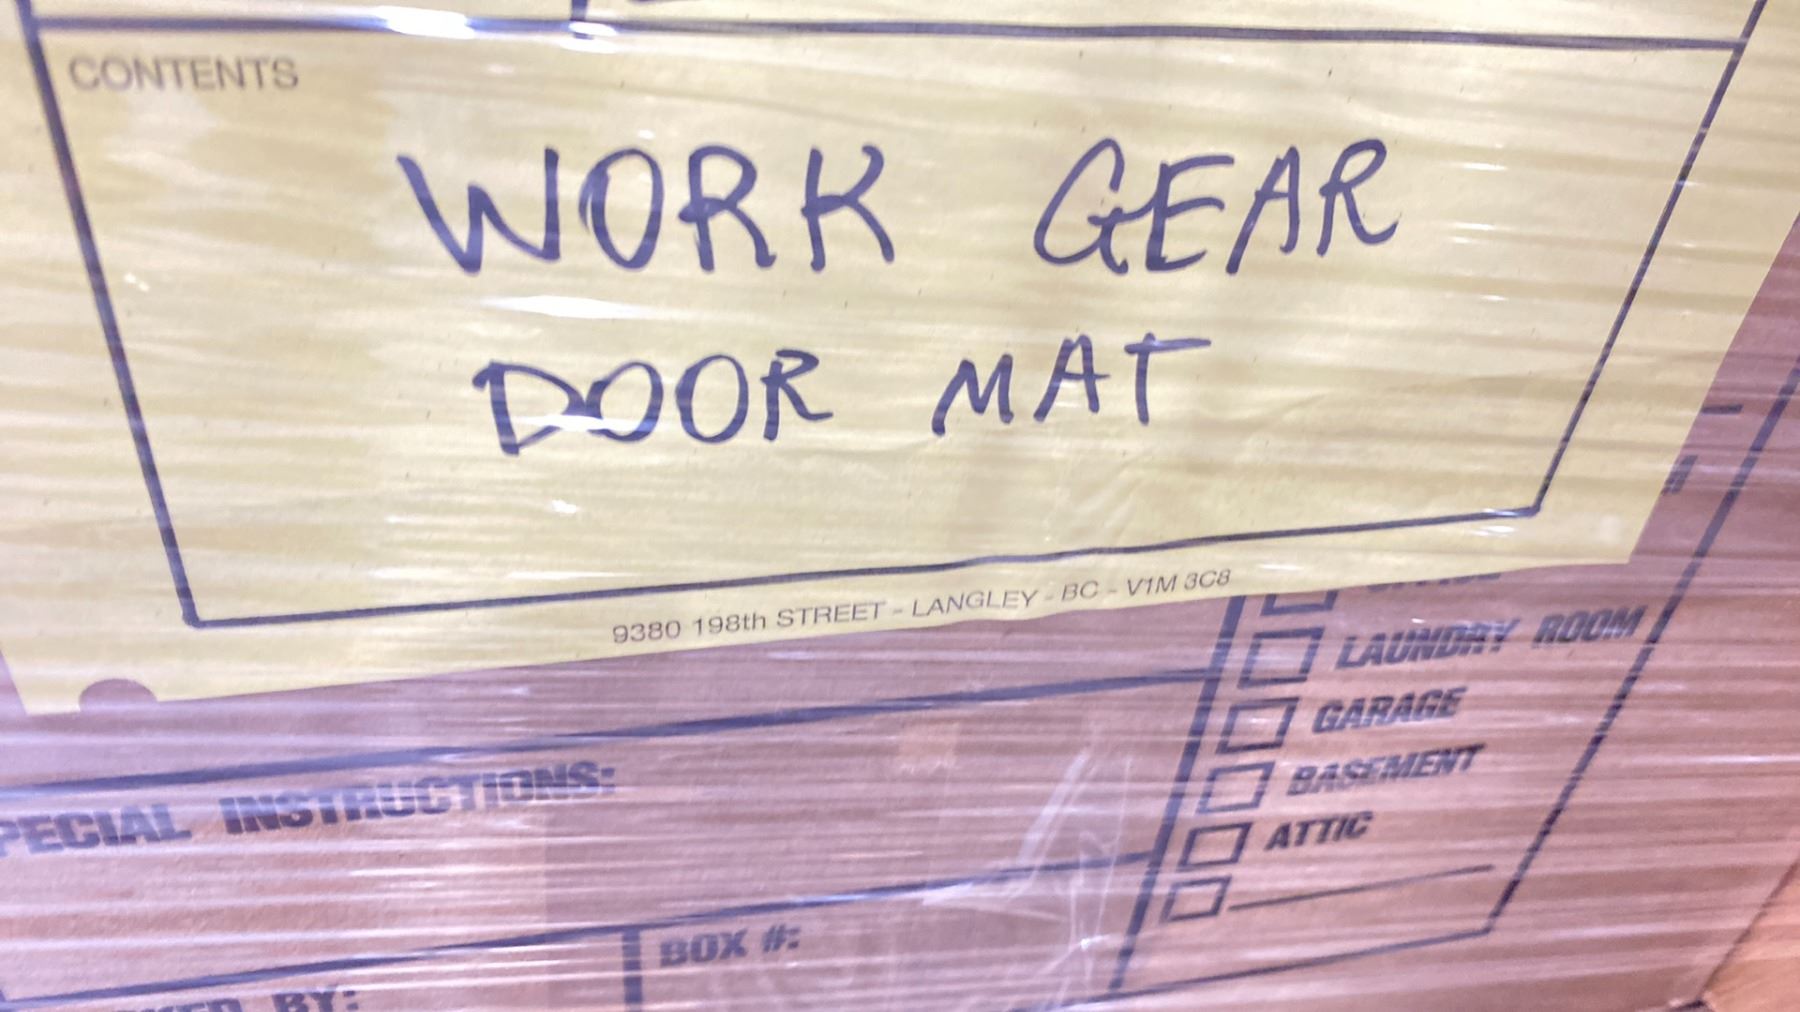 CONTENTS
WORK GEAR
DOOR MAT
9380 198th STREET - LANGLEY - BC - V1M 3C8
LAUNDRY ROOM
GARAGE
BASEMENT
ATTIC
PECIAL INSTRUCTIONS:
BOX #:
BY: